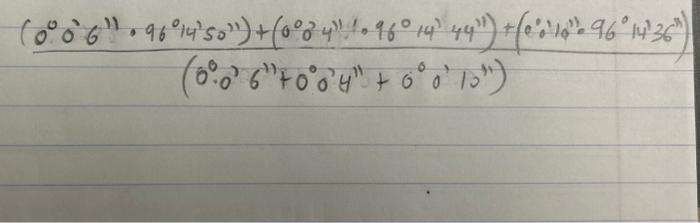 (0°0'6"•96°14'50")+(0°0'4"•96°14'44")+(0°0'10"•96°14'36")
(0°0'6"+0°0'4"+0°0'10")